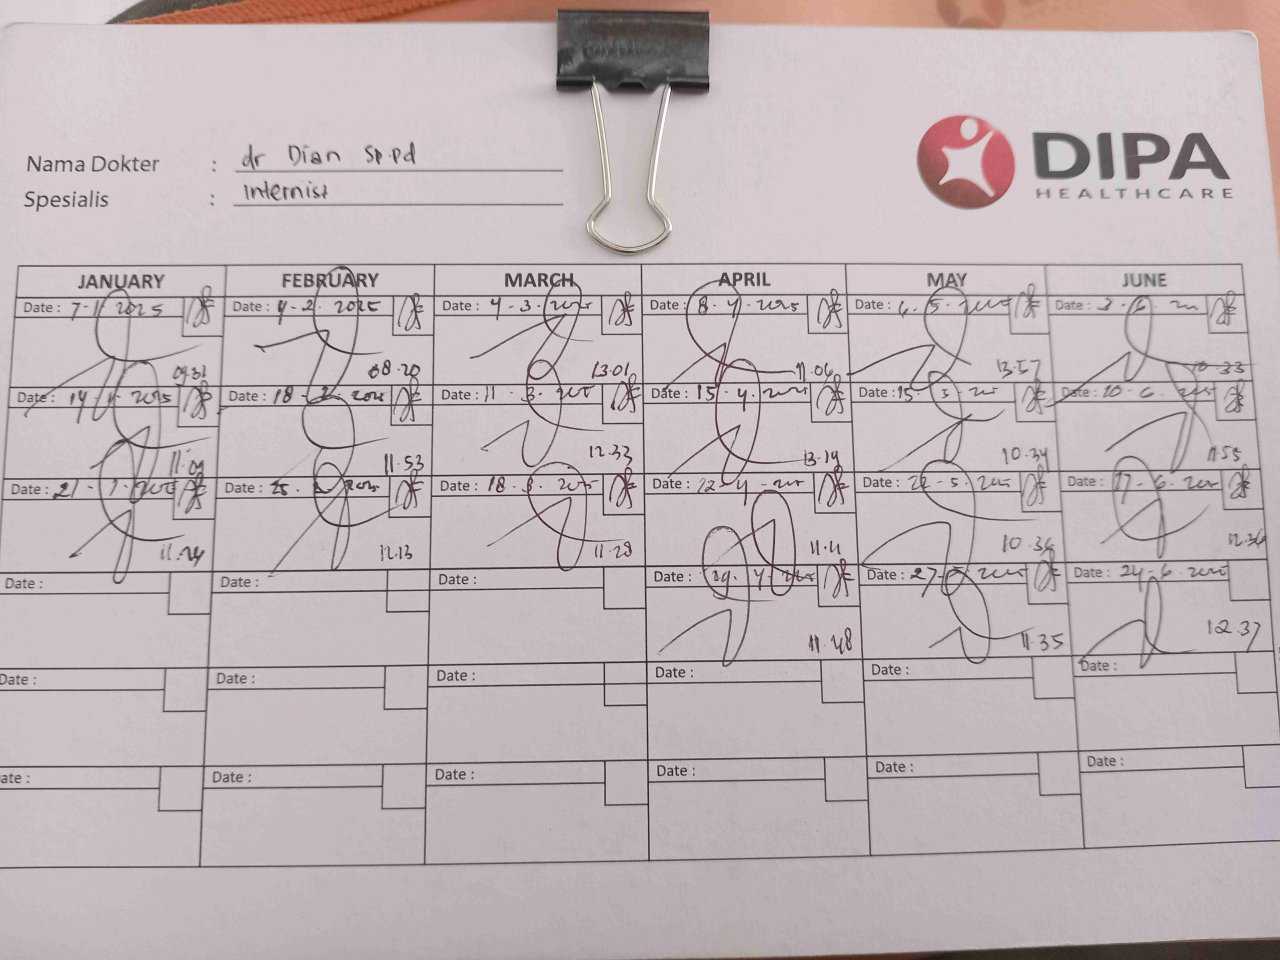 Nama Dokter : dr Dian Sp.pd
Spesialis : Internist
DIPA
HEALTHCARE
JANUARY FEBRUARY MARCH APRIL MAY JUNE
Date : 7-1 2025 Date : 4-2-2025 Date : 4-3-2025 Date : 8-4-2025 Date : 6.5.2025 Date : 3-6
09.31 08.20 13.01 11.06 13.57 10.33
Date : 14-1-2025 Date : 18-2-2025 Date : 11-3-2025 Date : 15-4-2025 Date : 15. Date : 10-6-2025
11.09 11.53 12.33 13.19 10.34 11.55
Date : 21-1-2025 Date : 25. 2025 Date : 18-3-2025 Date : 22-4- Date : 22-5-2025 Date : 17-6-2025
11.24 12.13 11.29 11.41 10.36 12.36
Date : Date : Date : Date : 29.4-2025 Date : 27-5-2025 Date : 24-6-2025
11.48 11.35 12.37
Date : Date : Date : Date : Date : Date :
ate : Date : Date : Date : Date : Date :